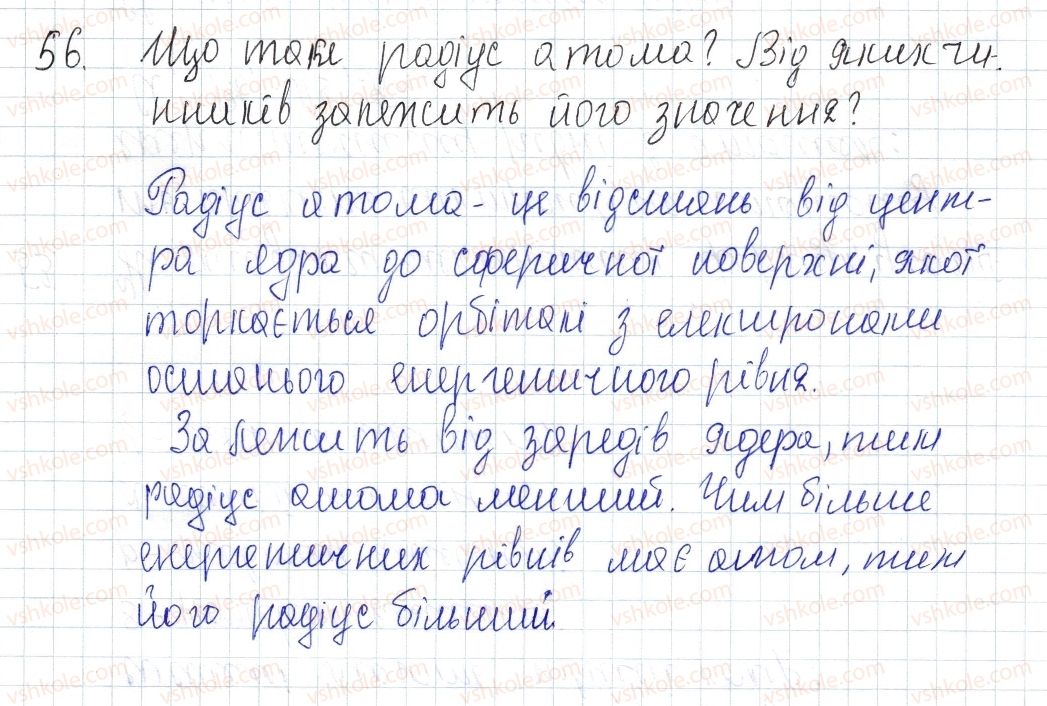 56. Що таке радіус атома? Від яких чи-
нників залежить його значення?
Радіус атома - це відстань від цент-
ра ядра до сферичної поверхні, якої
торкається орбіталі з електронами
останнього енергетичного рівня.
Залежить від зарядів ядера, тим
радіус атома менший. Чим більше
енергетичних рівнів має атом, тим
його радіус більший.